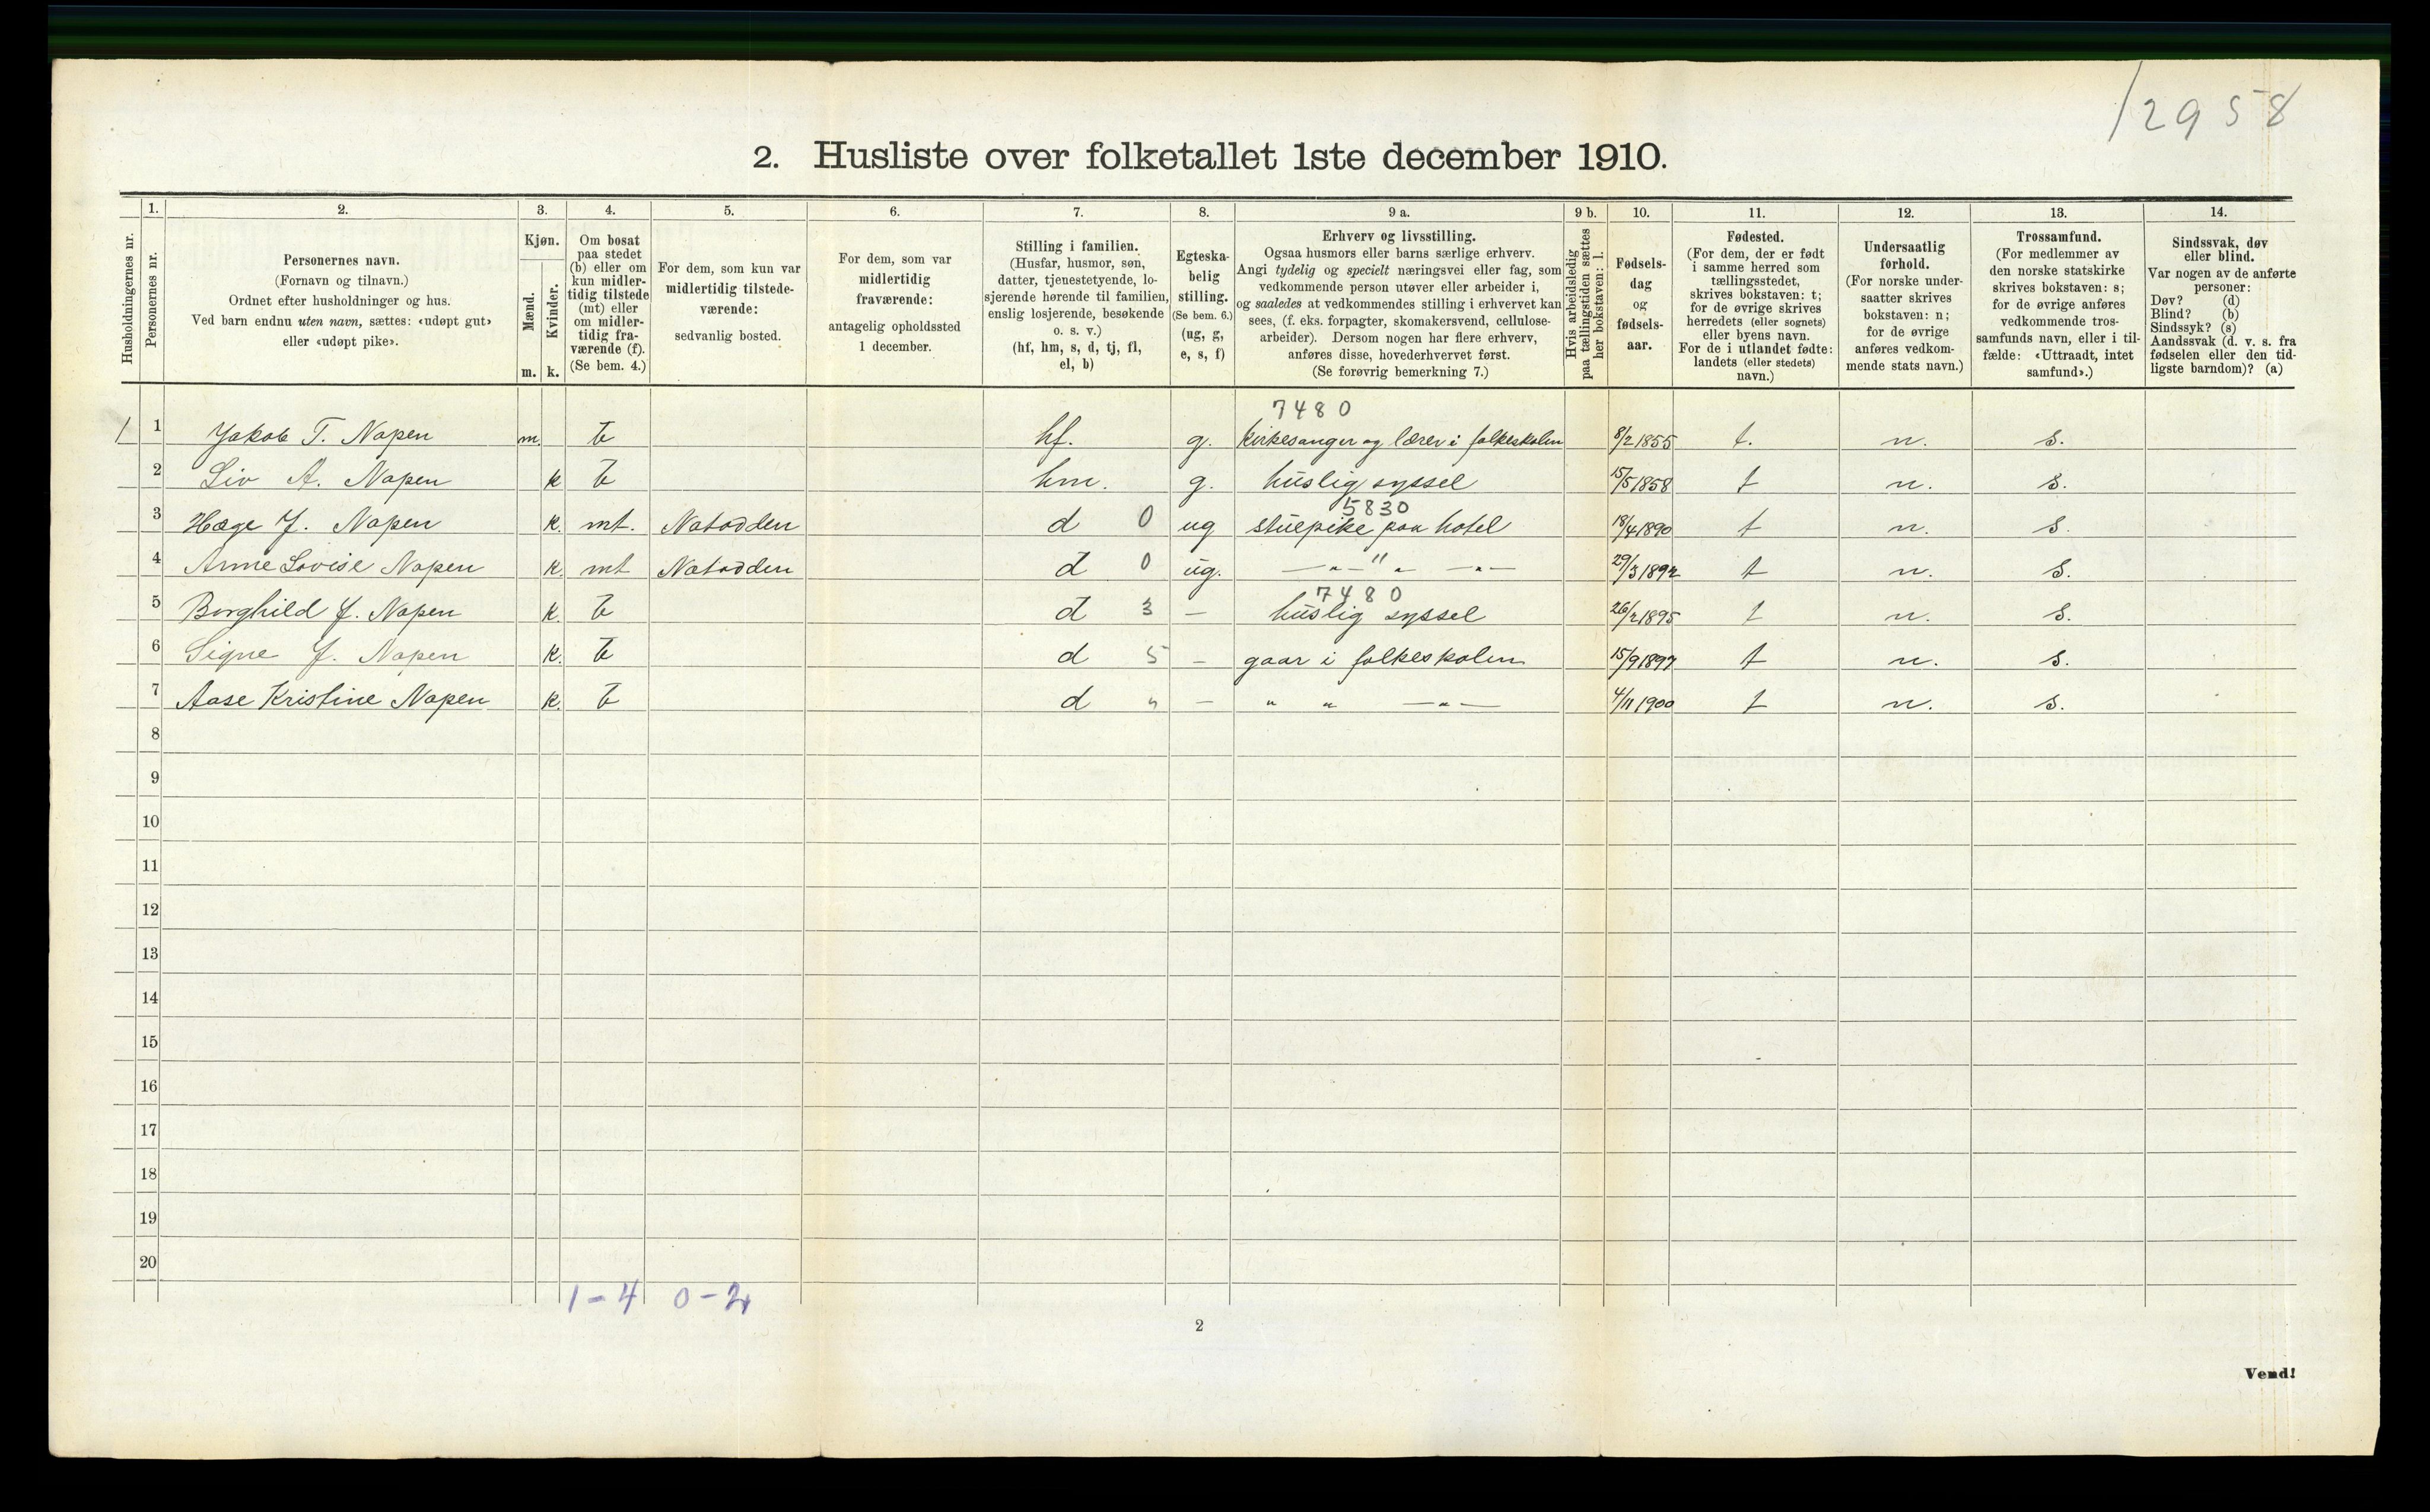 12958
2. Husliste over folketallet 1ste december 1910.
1. 2. 3. 4. 5. 6. 7. 8. 9 a. 9 b. 10. 11. 12. 13. 14.
Husholdningernes nr.
Personernes nr.
Personernes navn.
(Fornavn og tilnavn.)
Ordnet efter husholdninger og hus.
Ved barn endnu uten navn, sættes: «udøpt gut»
eller «udøpt pike».
Kjøn.
Mænd.
Kvinder.
m. k.
Om bosat
paa stedet
(b) eller om
kun midler-
tidig tilstede
(mt) eller
om midler-
tidig fra-
værende (f).
(Se bem. 4.)
For dem, som kun var
midlertidig tilstede-
værende:
sedvanlig bosted.
For dem, som var
midlertidig
fraværende:
antagelig opholdssted
1 december.
Stilling i familien.
(Husfar, husmor, søn,
datter, tjenestetyende, lo-
sjerende hørende til familien,
enslig losjerende, besøkende
o. s. v.)
(hf, hm, s, d, tj, fl,
el, b)
Egteska-
belig
stilling.
(Se bem. 6.)
(ug, g,
e, s, f)
Erhverv og livsstilling.
Ogsaa husmors eller barns særlige erhverv.
Angi tydelig og specielt næringsvei eller fag, som
vedkommende person utøver eller arbeider i,
og saaledes at vedkommendes stilling i erhvervet kan
sees, (f. eks. forpagter, skomakersvend, cellulose-
arbeider). Dersom nogen har flere erhverv,
anføres disse, hovederhvervet først.
(Se forøvrig bemerkning 7.)
Hvis arbeidsledig
paa tællingstiden sættes
her bokstaven: l.
Fødsels-
dag
og
fødsels-
aar.
Fødested.
(For dem, der er født
i samme herred som
tællingsstedet,
skrives bokstaven: t;
for de øvrige skrives
herredets (eller sognets)
eller byens navn.
For de i utlandet fødte:
landets (eller stedets)
navn.)
Undersaatlig
forhold.
(For norske under-
saatter skrives
bokstaven: n;
for de øvrige
anføres vedkom-
mende stats navn.)
Trossamfund.
(For medlemmer av
den norske statskirke
skrives bokstaven: s;
for de øvrige anføres
vedkommende tros-
samfunds navn, eller i til-
fælde: «Uttraadt, intet
samfund».)
Sindssvak, døv
eller blind.
Var nogen av de anførte
personer:
Døv? (d)
Blind? (b)
Sindssyk? (s)
Aandssvak (d. v. s. fra
fødselen eller den tid-
ligste barndom)? (a)
7480
1 1 Jakob T. Napen m. b hf. g. kirkesanger og lærer i folkeskolen 8/2 1855 t. n. s.
2 Liv A. Napen k b hm. g. huslig syssel 15/5 1858 t n. s.
5830
3 Hæge J. Napen k. mt. Notodden d 0 ug stuepike paa hotel 18/4 1890 t n. s.
4 Anne Lovise Napen k. mt Notodden d 0 ug. —"— " " —"— 29/3 1892 t n. s.
7480
5 Borghild J. Napen k. b d 3 — huslig syssel 26/2 1895 t n. s.
6 Signe J. Napen k. b d 5 — gaar i folkeskolen 15/9 1897 t n. s.
7 Aase Kristine Napen k. b d " — " " —"— 4/11 1900 t n. s.
8
9
10
11
12
13
14
15
16
17
18
19
20
1-4 0-2
2
Vend!